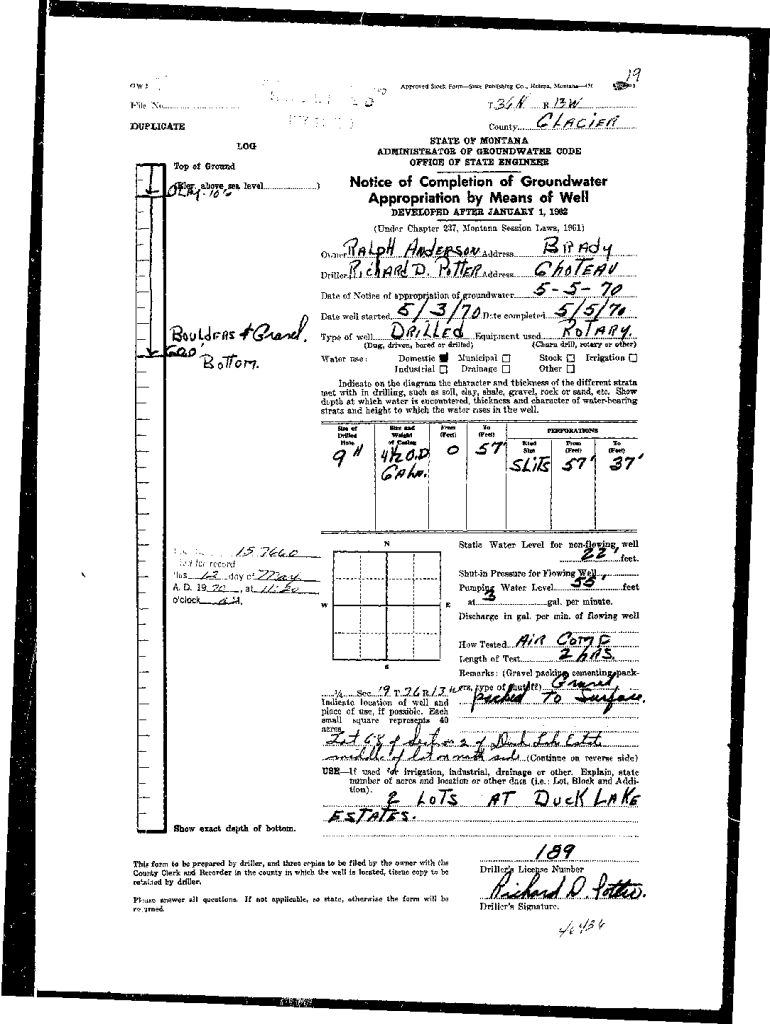 19
GW 2
Approved Stock Form—State Publishing Co., Helena, Montana
File No.
T. 36N R 13W
DUPLICATE
County GLACIER
LOG
STATE OF MONTANA
ADMINISTRATOR OF GROUNDWATER CODE
OFFICE OF STATE ENGINEER
Top of Ground
(Elev. above sea level )
CLAY-10'
Notice of Completion of Groundwater
Appropriation by Means of Well
DEVELOPED AFTER JANUARY 1, 1962
(Under Chapter 237, Montana Session Laws, 1961)
Owner RALPH ANDERSON Address BRADY
Driller RICHARD D. POTTER Address CHOTEAU
Date of Notice of appropriation of groundwater 5-5-70
Date well started 5/3/70 Date completed 5/5/70
BOULDERS & Gravel.
Type of well DRILLED Equipment used ROTARY.
(Dug, driven, bored or drilled) (Churn drill, rotary or other)
60'
BOTTOM.
Water use: Domestic Municipal Stock Irrigation
Industrial Drainage Other
Indicate on the diagram the character and thickness of the different strata
met with in drilling, such as soil, clay, shale, gravel, rock or sand, etc. Show
depth at which water is encountered, thickness and character of water-bearing
strata and height to which the water rises in the well.
Size of Drilled Hole
Size and Weight of Casing
From (Feet)
To (Feet)
PERFORATIONS
Kind Size
From (Feet)
To (Feet)
9" 4½ O.D. 0 57' SLITS 57' 37'
N
Static Water Level for non-flowing well
22' feet.
157660
for record
this 12 day of May
A. D. 19 70, at 11:20
o'clock
Shut-in Pressure for Flowing Well
Pumping Water Level 55' feet
at 3 gal. per minute.
W
E
Discharge in gal. per min. of flowing well
How Tested AIR COMP
Length of Test 2 hRS.
S
Remarks: (Gravel packing, cementing, packers, type of shutoff) Gravel
packed To Surface.
¼ Sec. 19 T. 36 R 13 W
Indicate location of well and
place of use, if possible. Each
small square represents 40
acres.
Lot 68 of section 2 of Duck Lake Estate
middle of lot on north side (Continue on reverse side)
USE—If used for irrigation, industrial, drainage or other. Explain, state
number of acres and location or other data (i.e.: Lot, Block and Addition).
2 LOTS AT DUCK LAKE
ESTATES.
Show exact depth of bottom.
This form to be prepared by driller, and three copies to be filed by the owner with the
County Clerk and Recorder in the county in which the well is located, tissue copy to be
retained by driller.
Please answer all questions. If not applicable, so state, otherwise the form will be
returned.
189
Driller's License Number
Richard D. Potter.
Driller's Signature.